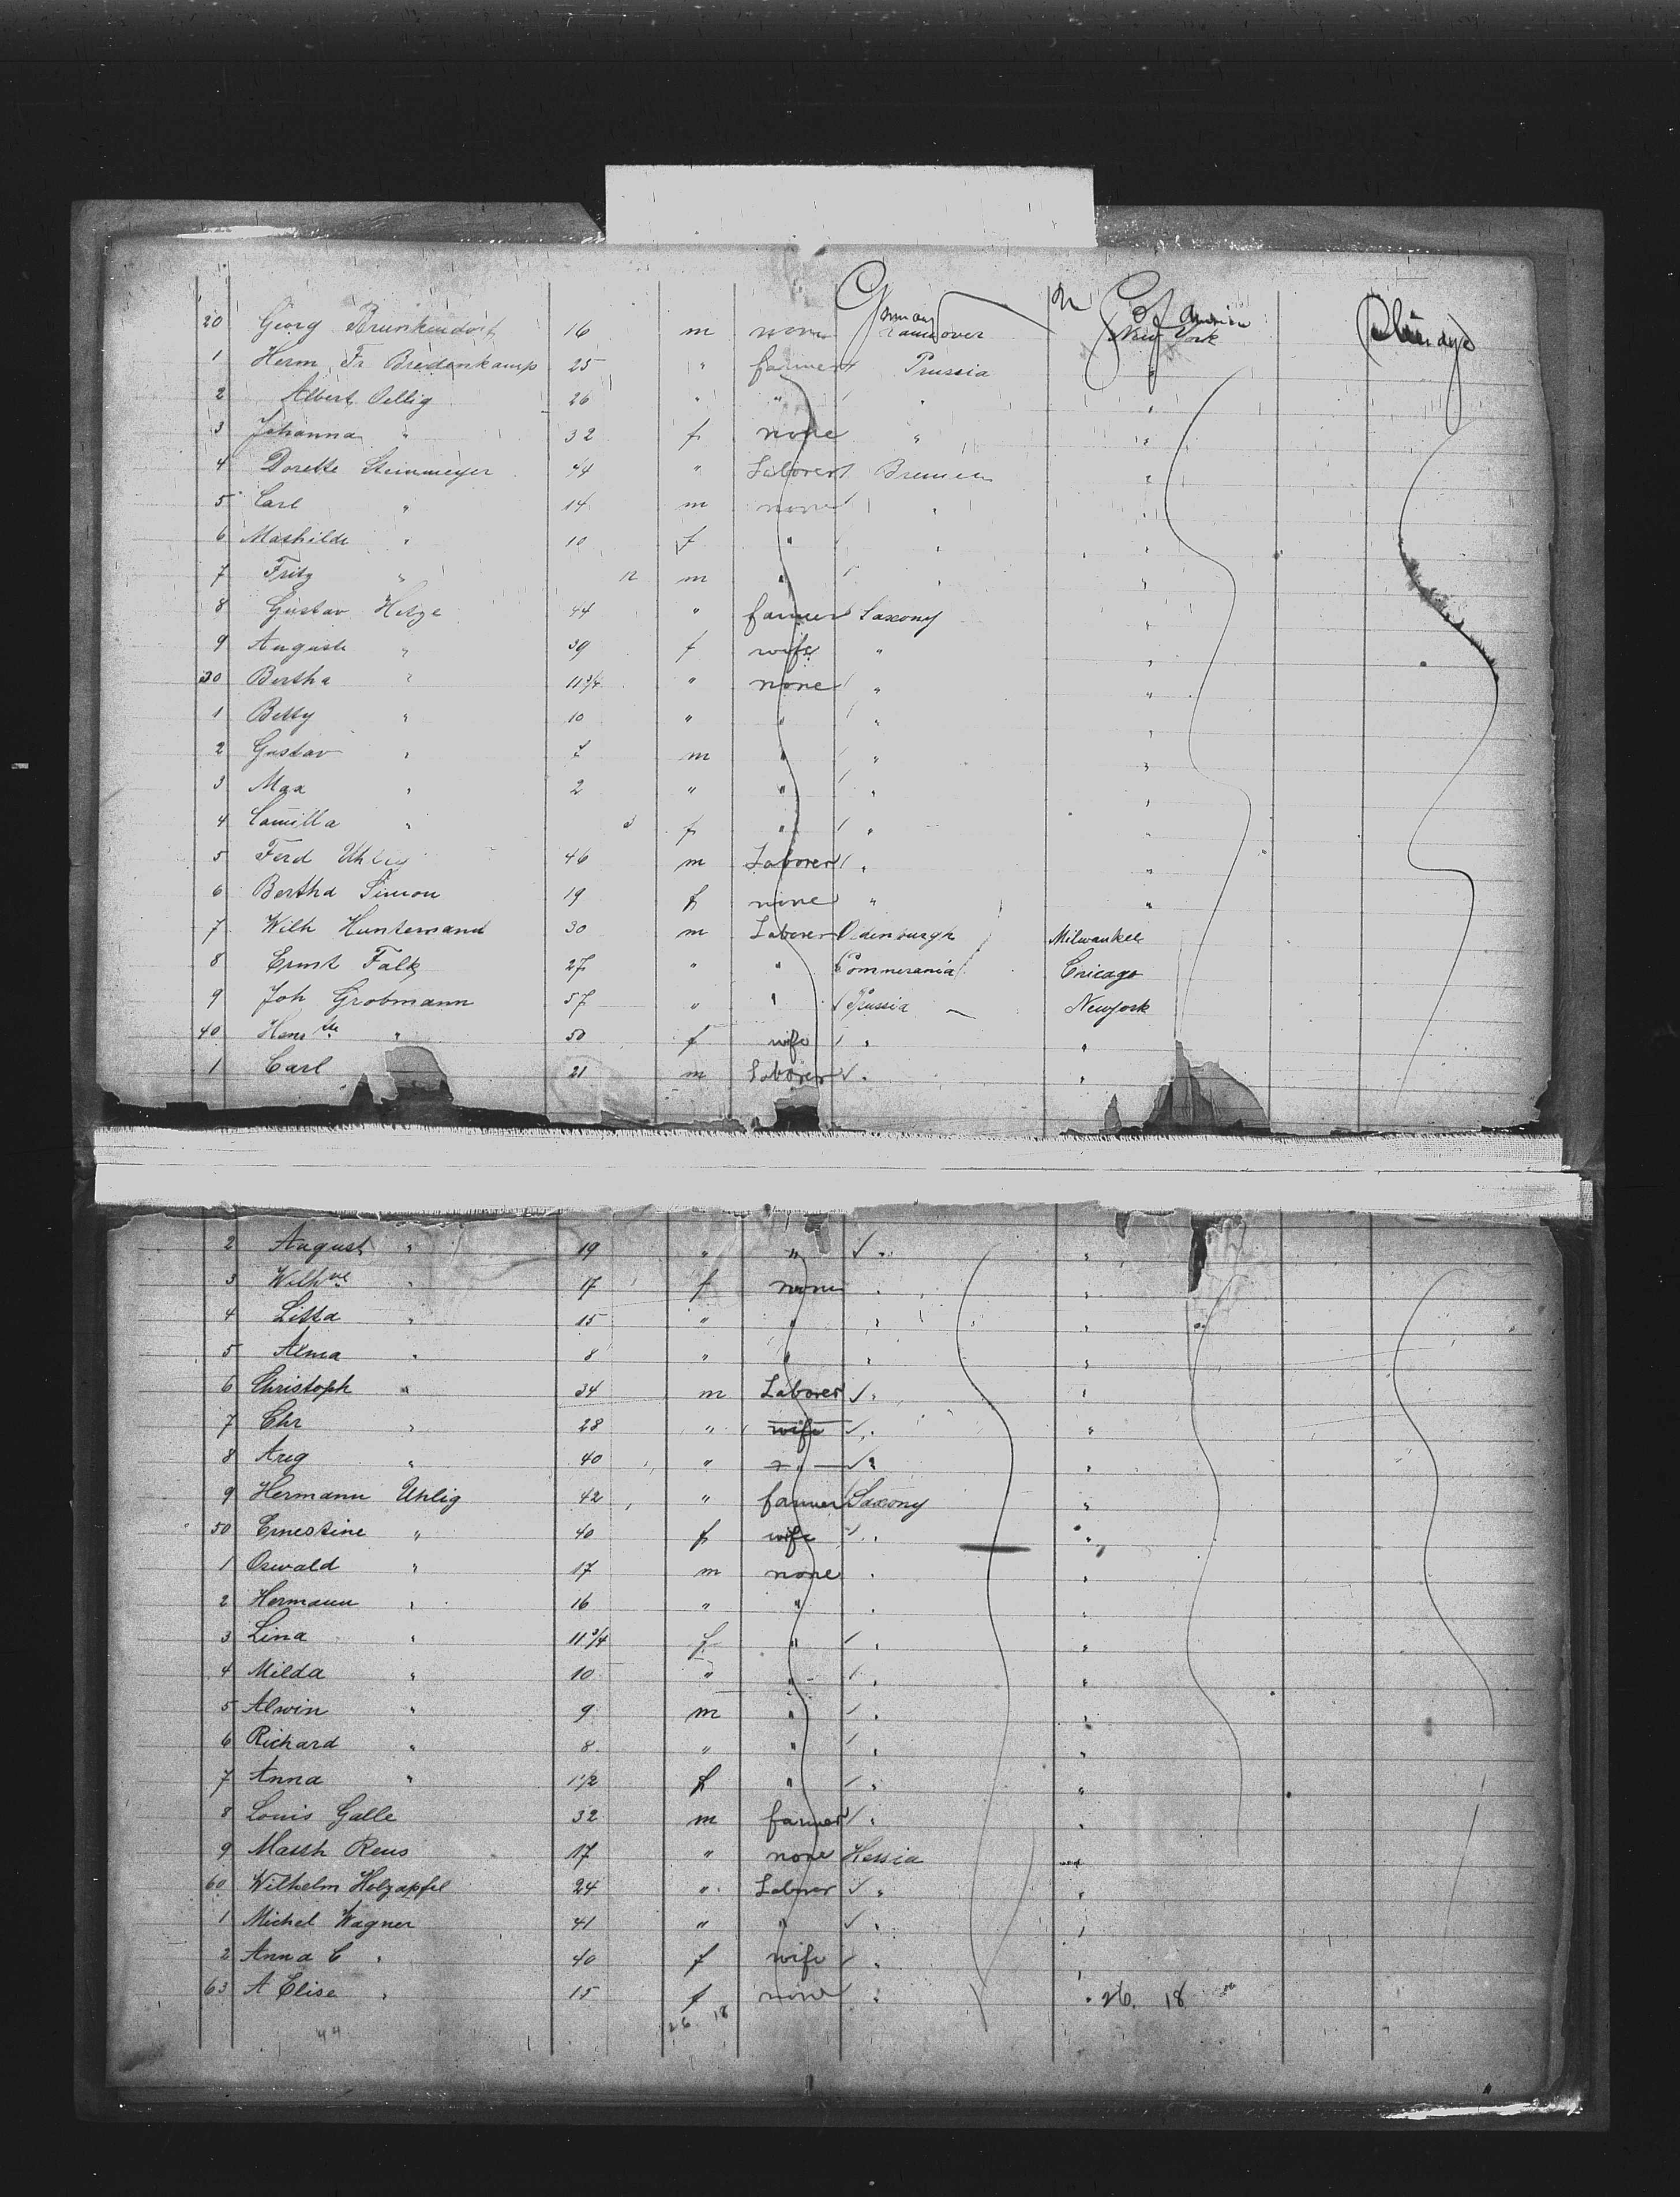 Germany U S of America Steerage
20 Georg Brunkendorf 16 m none Hannover New York
1 Herm. Fr. Bredenkamp 25 " farmer Prussia "
2 Albert Oellig 26 " " " "
3 Johanna " 32 f none " "
4 Dorette Steinmeyer 44 " Laborer Bremen "
5 Carl " 14 m none " "
6 Mathilde " 10 f " " "
7 Fritz " 12 m " " "
8 Gustav Hetze 44 " farmer Saxony "
9 Auguste " 39 f wife " "
30 Bertha " 11 3/4 " none " "
1 Betty " 10 " " " "
2 Gustav " 7 m " " "
3 Max " 2 " " " "
4 Camilla " 3 f " " "
5 Ferd Uhlig 46 m Laborer " "
6 Bertha Simon 19 f none " "
7 Wilh Huntemand 30 m Laborer Oldenburgh Milwaukee
8 Ernst Falk 27 " " Pommerania Chicago
9 Joh Grobmann 57 " " Prussia Newyork
40 Henrtte " 50 f wife " "
1 Carl 21 m Laborer " "
2 August " 19 " " " "
3 Wilhne " 17 f none " "
4 Litta " 15 " " " "
5 Alma " 8 " " " "
6 Christoph " 34 m Laborer " "
7 Chr " 28 " wife " "
8 Aug " 40 " " " "
9 Hermann Uhlig 42 " farmer Saxony "
50 Ernestine " 40 f wife " "
1 Oswald " 17 m none " "
2 Hermann " 16 " " " "
3 Lina " 11 3/4 f " " "
4 Milda " 10 " " " "
5 Alwin " 9 m " " "
6 Richard " 8 " " " "
7 Anna " 1 1/2 f " " "
8 Louis Galle 32 m farmer " "
9 Matth Reus 17 " none Hessia "
60 Wilhelm Holzapfel 24 " Laborer " "
1 Michel Wagner 41 " " " "
2 Anna C " 40 f wife " "
63 A Elise " 15 f none " " 26. 18
44 26 18